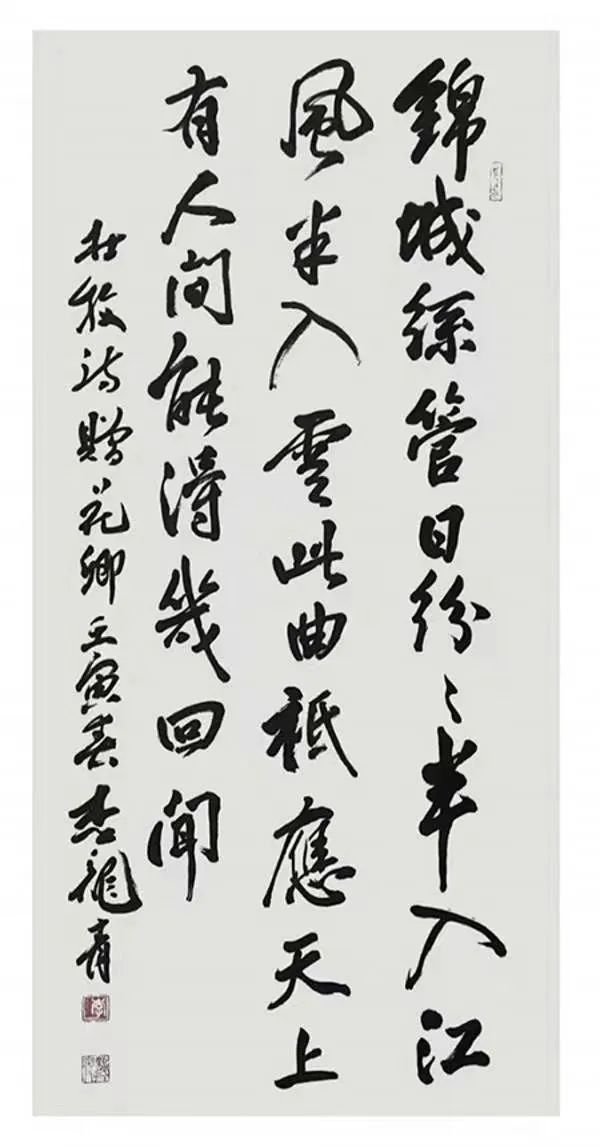 錦城絲管日紛〻半入江
風半入雲此曲祗應天上
有人間能得幾回聞
杜牧詩贈花卿壬寅春